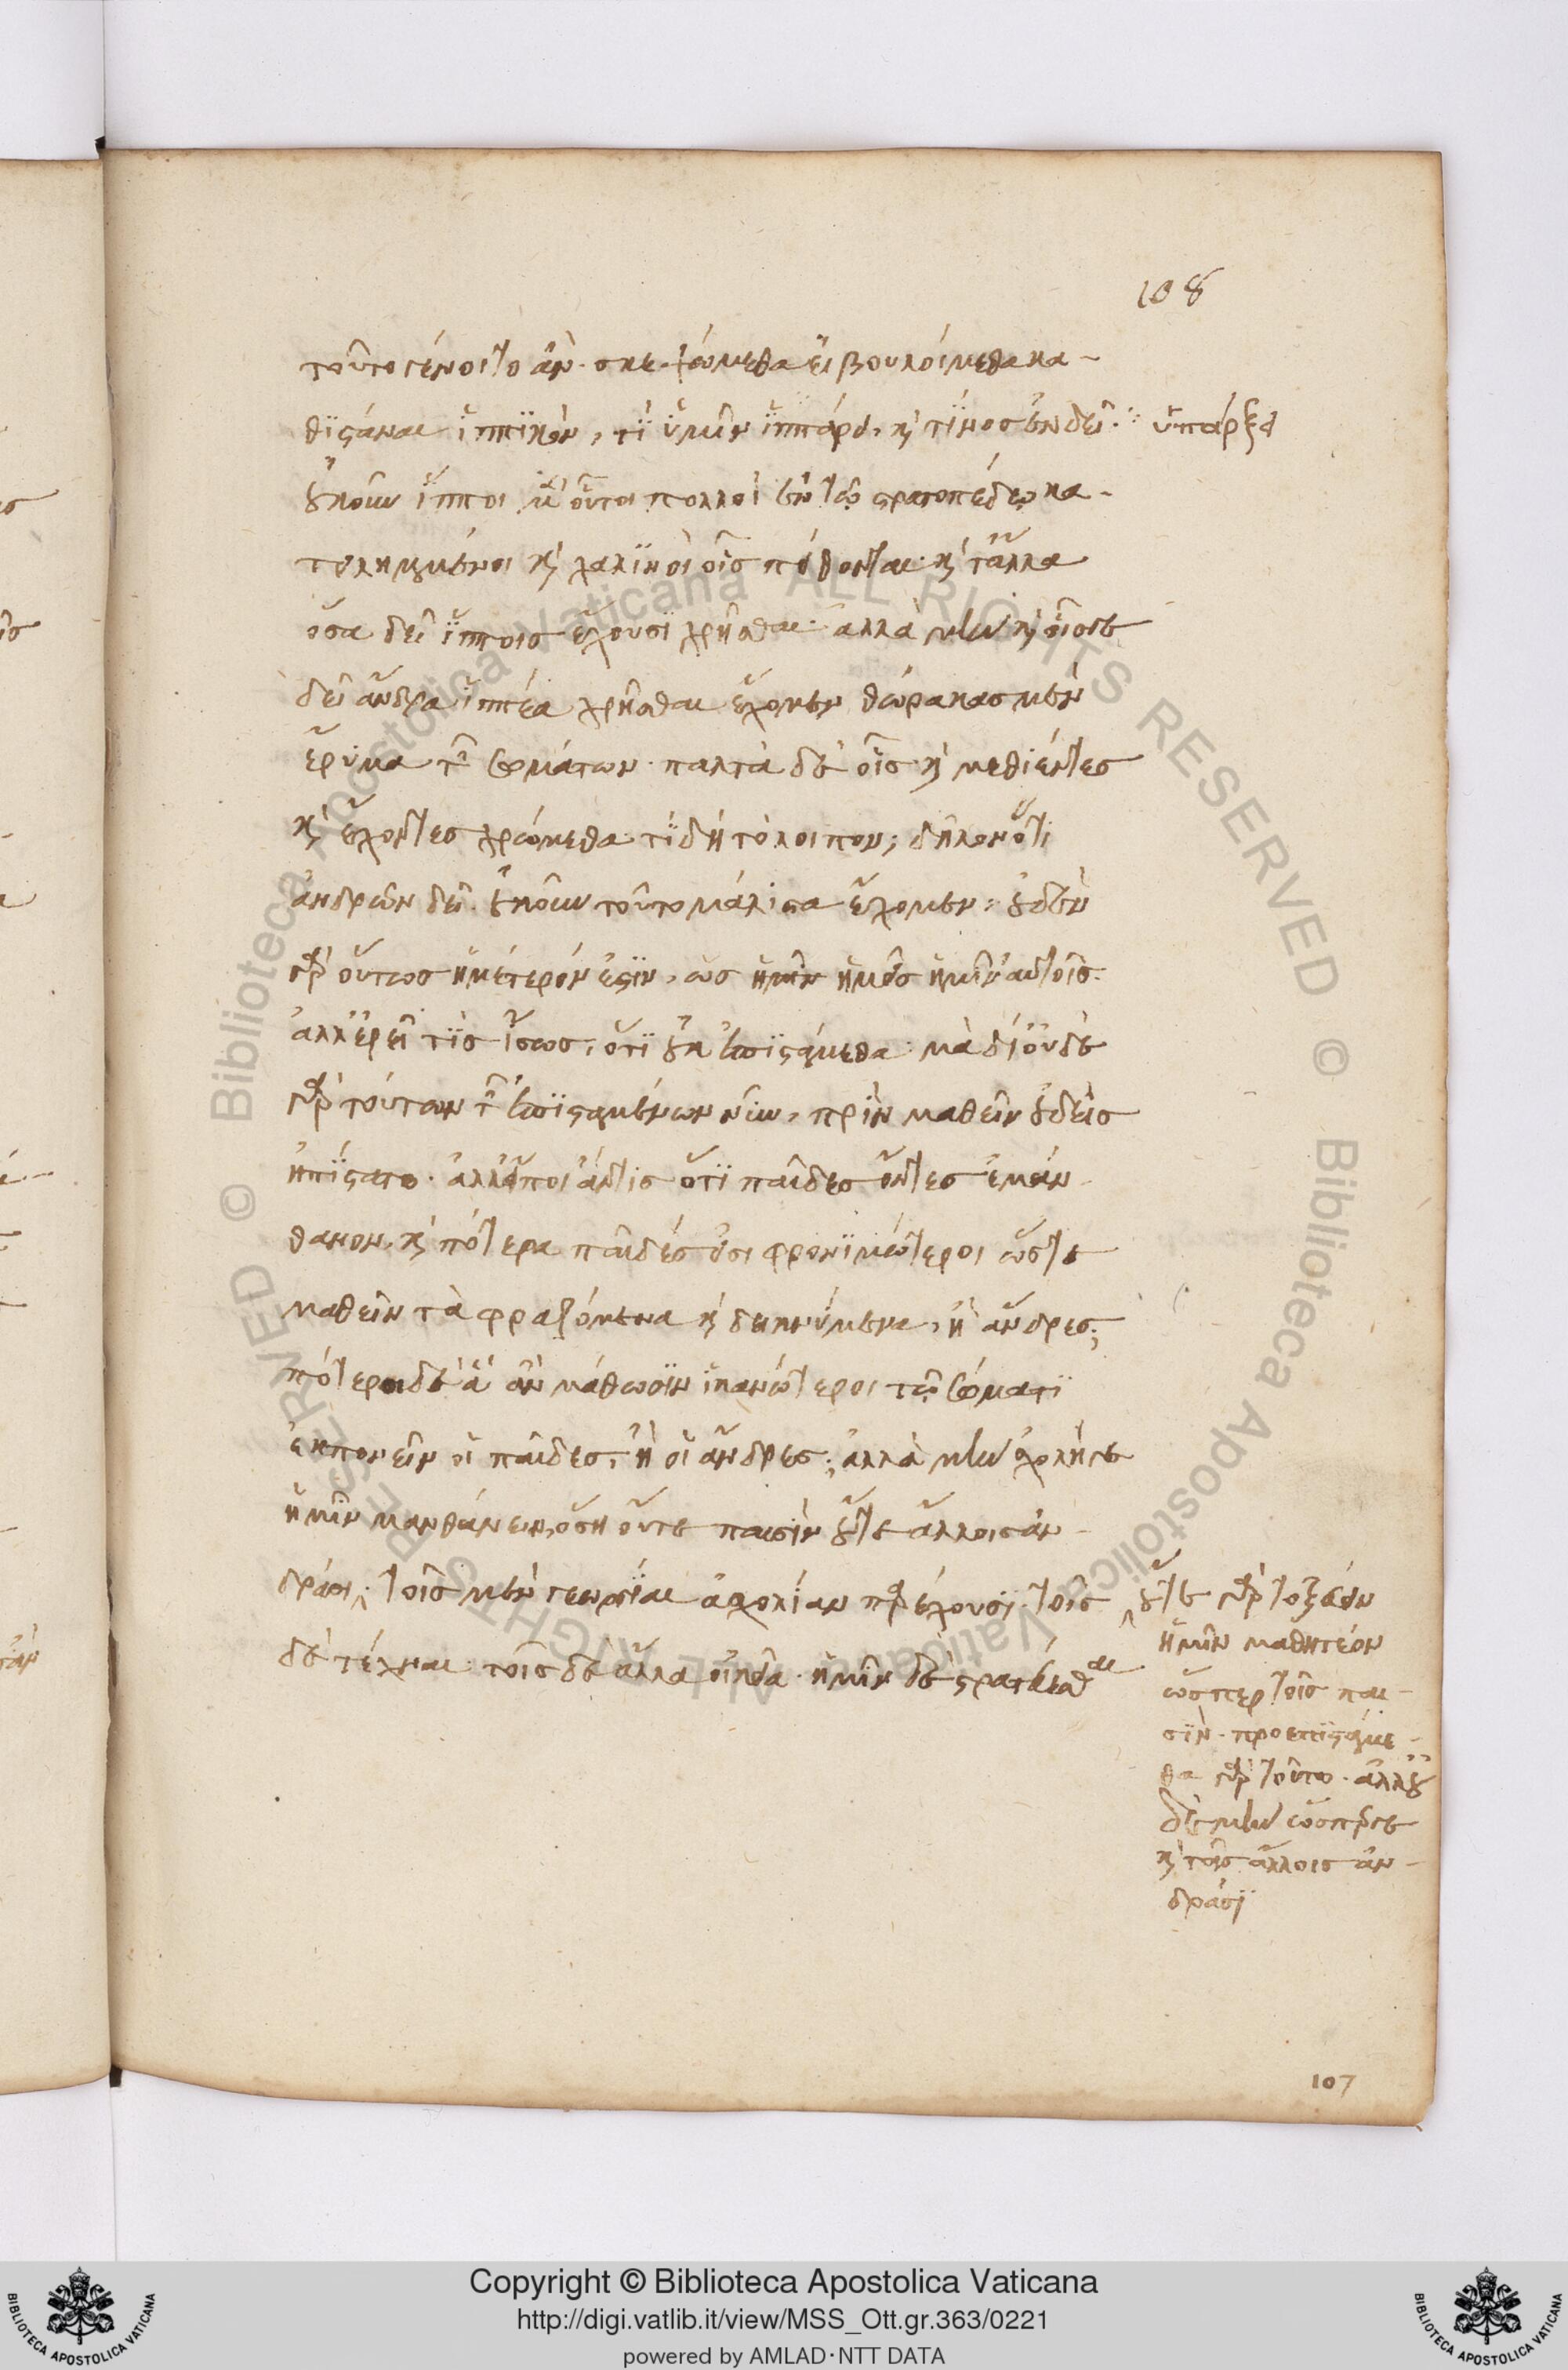 108
τοῦτο γένοιτο ἄν· σκεψώμεθα εἰ βουλοίμεθα κα-
θϊστάναι ἱππϊκὸν, τί ὑμῖν ἱππάρχει, καὶ τίνος ἐνδεῖ· ὑπάρξει
οὐκοῦν ἵπποι μὲν οὗτοι πολλοὶ ἐν τῷ στρατοπέδῳ κα-
τειλημμένοι καὶ χαλϊνοὶ οἷς πείθονται· καὶ τἄλλα
ὅσα δεῖ ἵπποις ἔχουσϊ χρῆσθαι· ἀλλὰ μὴν καὶ οἷς γε
δεῖ ἄνδρα ἱππέα χρῆσθαι ἔχομεν θώρακας μὲν
ἔρυμα τῶν σωμάτων· παλτὰ δὲ οἷς καὶ μεθιέντες
καὶ ἔχοντες χρώμεθα· τί δὴ τὸ λοιπον; δηλονότι
ἀνδρῶν δεῖ. οὐκοῦν τοῦτο μάλιστα ἔχομεν· οὐδὲν
γὰρ οὕτως ἡμέτερόν ἐστϊν, ὡς ἡμῖν ἡμεῖς ἡμῖν αὐτοῖς·
ἀλλ' ἐρεῖ τϊς ἴσως, ὅτϊ οὐκ ἐπϊστάμεθα· μὰ δί' οὐδὲ
γὰρ τούτων τῶν ἐπϊσταμένων νῦν, πρὶν μαθεῖν οὐδεὶς
ἠπίστατο· ἀλλ' εἴποι ἄν τις ὅτϊ παῖδες ὄντες ἐμάν-
θανον, καὶ πότερα παῖδές εἰσι φρονϊμώτεροι ὥστε
μαθεῖν τὰ φραζόμενα καὶ δεικνύμενα, ἢ ἄνδρες;
πότεροι δὲ ἃ ἂν μάθωσϊν ἱκανώτεροι τῷ σώματϊ
ἐκπονεῖν οἱ παῖδες, ἢ οἱ ἄνδρες; ἀλλὰ μὴν σχολή γε
ἡμῖν μανθάνειν, ὅση οὔτε παισὶν οὔτε ἄλλοις ἀν-
δράσι; τοῖς μὲν γεωργίαι ἀσχολίαν παρέχουσϊ. τοῖς
δὲ τέχναι· τοῖς δὲ ἄλλα οἰκεῖα· ἡμῖν δὲ στρατεύεσθαι
οὔτε γὰρ τοξεύειν
ἡμῖν μαθητέον
ὥσπερ τοῖς παι-
σϊν· προεπϊστάμε-
θα γὰρ τοῦτο· ἀλλ' οὐ
δὲ μὴν ὥσπερ γε
καὶ τοῖς ἄλλοις ἀν-
δράσϊ
107
© Biblioteca Apostolica Vaticana ALL RIGHTS RESERVED © Biblioteca Apostolica Vaticana ALL RIGHTS RESERVED
BIBLIOTECA APOSTOLICA VATICANA
Copyright © Biblioteca Apostolica Vaticana
http://digi.vatlib.it/view/MSS_Ott.gr.363/0221
powered by AMLAD·NTT DATA
BIBLIOTECA APOSTOLICA VATICANA